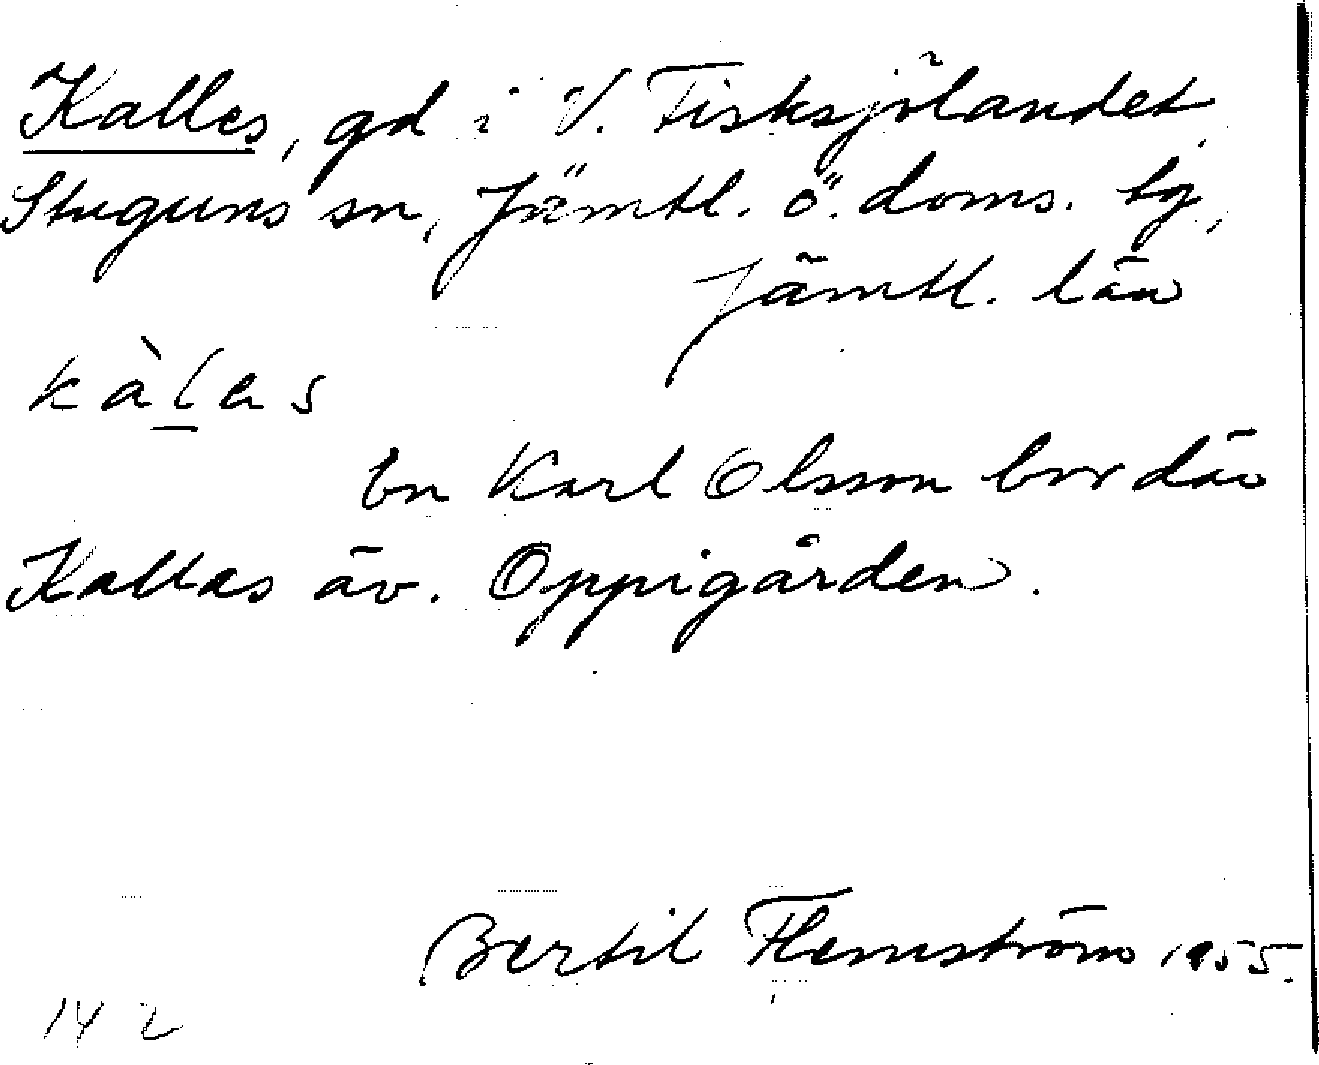 Kalles, gd i V. Fisksjölandet,
Stuguns sn, Jämtl. ö. doms. tg,
Jämtl. län
kàlas
bn Karl Olsson bor där
Kallas äv. Oppigården.
Bertil Flemström 1955.
142